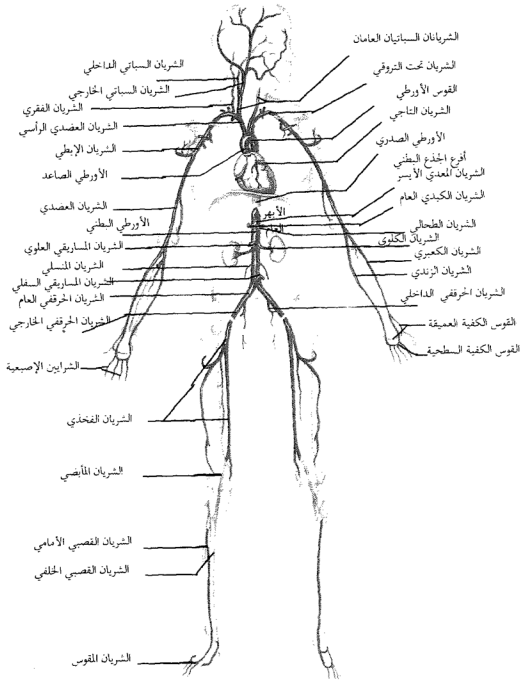 الشريانان السباتيان العامان
الشريان تحت التروقي
القوس الأورطي
الشريان التاجي
الأورطي الصدري
أفرع الجذع البطني
الشريان المعدي الأيسر
الشريان الكبدي العام
الشريان الطحالي
الشريان الكلوي
الشريان الكعبري
الشريان الزندي
الشريان الحرقفي الداخلي
القوس الكفية العميقة
القوس الكفية السطحية
الأبهر
الشريان السباتي الداخلي
الشريان السباتي الخارجي
الشريان الفقري
الشريان العضدي الرأسي
الشريان الإبطي
الأورطي الصاعد
الشريان العضدي
الأورطي البطني
الشريان المساريقي العلوي
الشريان المنسلي
الشريان المساريقي السفلي
الشريان الحرقفي العام
الشريان الحرقفي الخارجي
الشرايين الإصبعية
الشريان الفخذي
الشريان المأبضي
الشريان القصبي الأمامي
الشريان القصبي الخلفي
الشريان المقوس